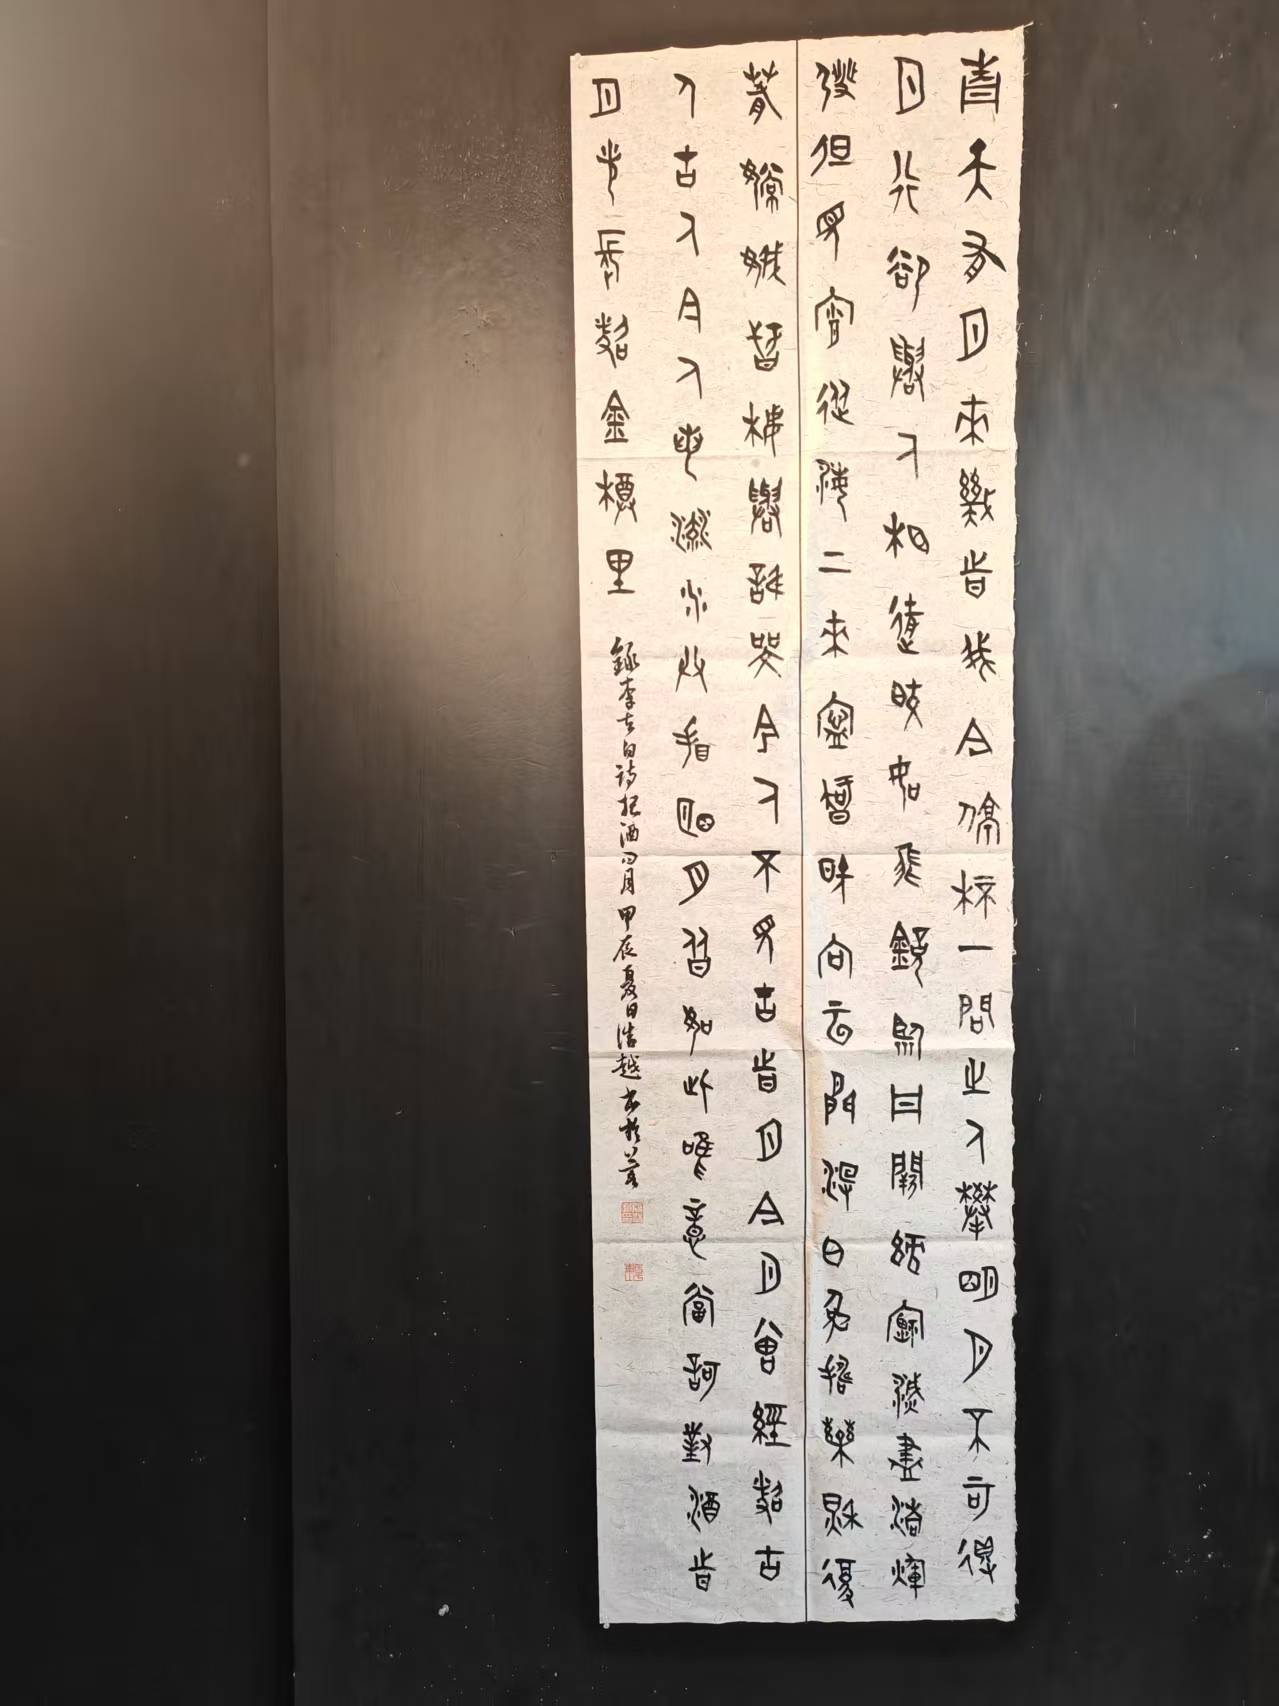 青天有月來幾時我今停杯一問之人攀明月不可得
月行卻與人相隨皎如飛鏡臨丹闕綠煙滅盡清輝
發但見宵從海上來寧知曉向雲間沒白兔搗藥秋復
春嫦娥孤棲與誰鄰今人不見古時月今月曾經照古
人古人今人若流水共看明月皆如此唯願當歌對酒時
月光長照金樽里 錄李太白詩把酒問月 甲辰夏日浩越書於